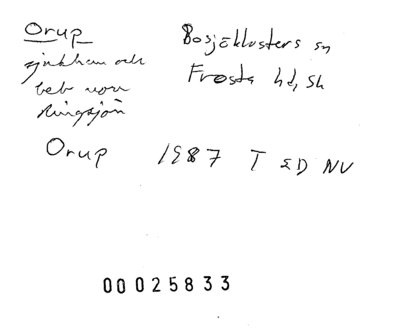 Orup
Bosjöklosters sn
sjukhem och
Frosta hd, Sk
beb vid
Ringsjön
Orup 1987 T ED NV
00025833